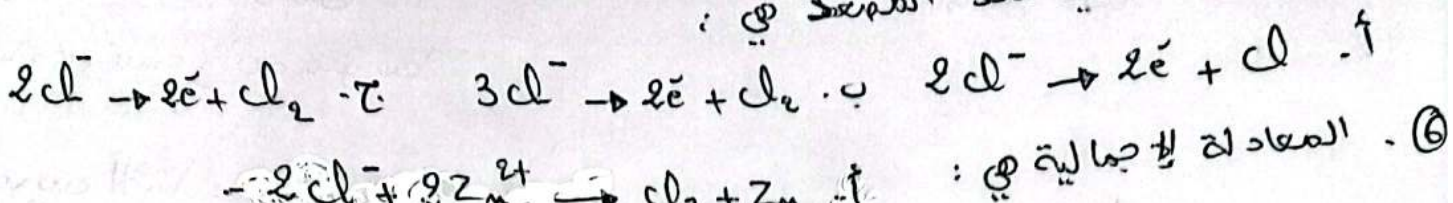 هي :
أ. 2Cl⁻ → 2e⁻ + Cl ب. 3Cl⁻ → 2e⁻ + Cl₂ ج. 2Cl⁻ → 2e⁻ + Cl₂
⑥. المعادلة الإجمالية هي : أ. 2Cl⁻ + 2Zn²⁺ → Cl₂ + Zn -